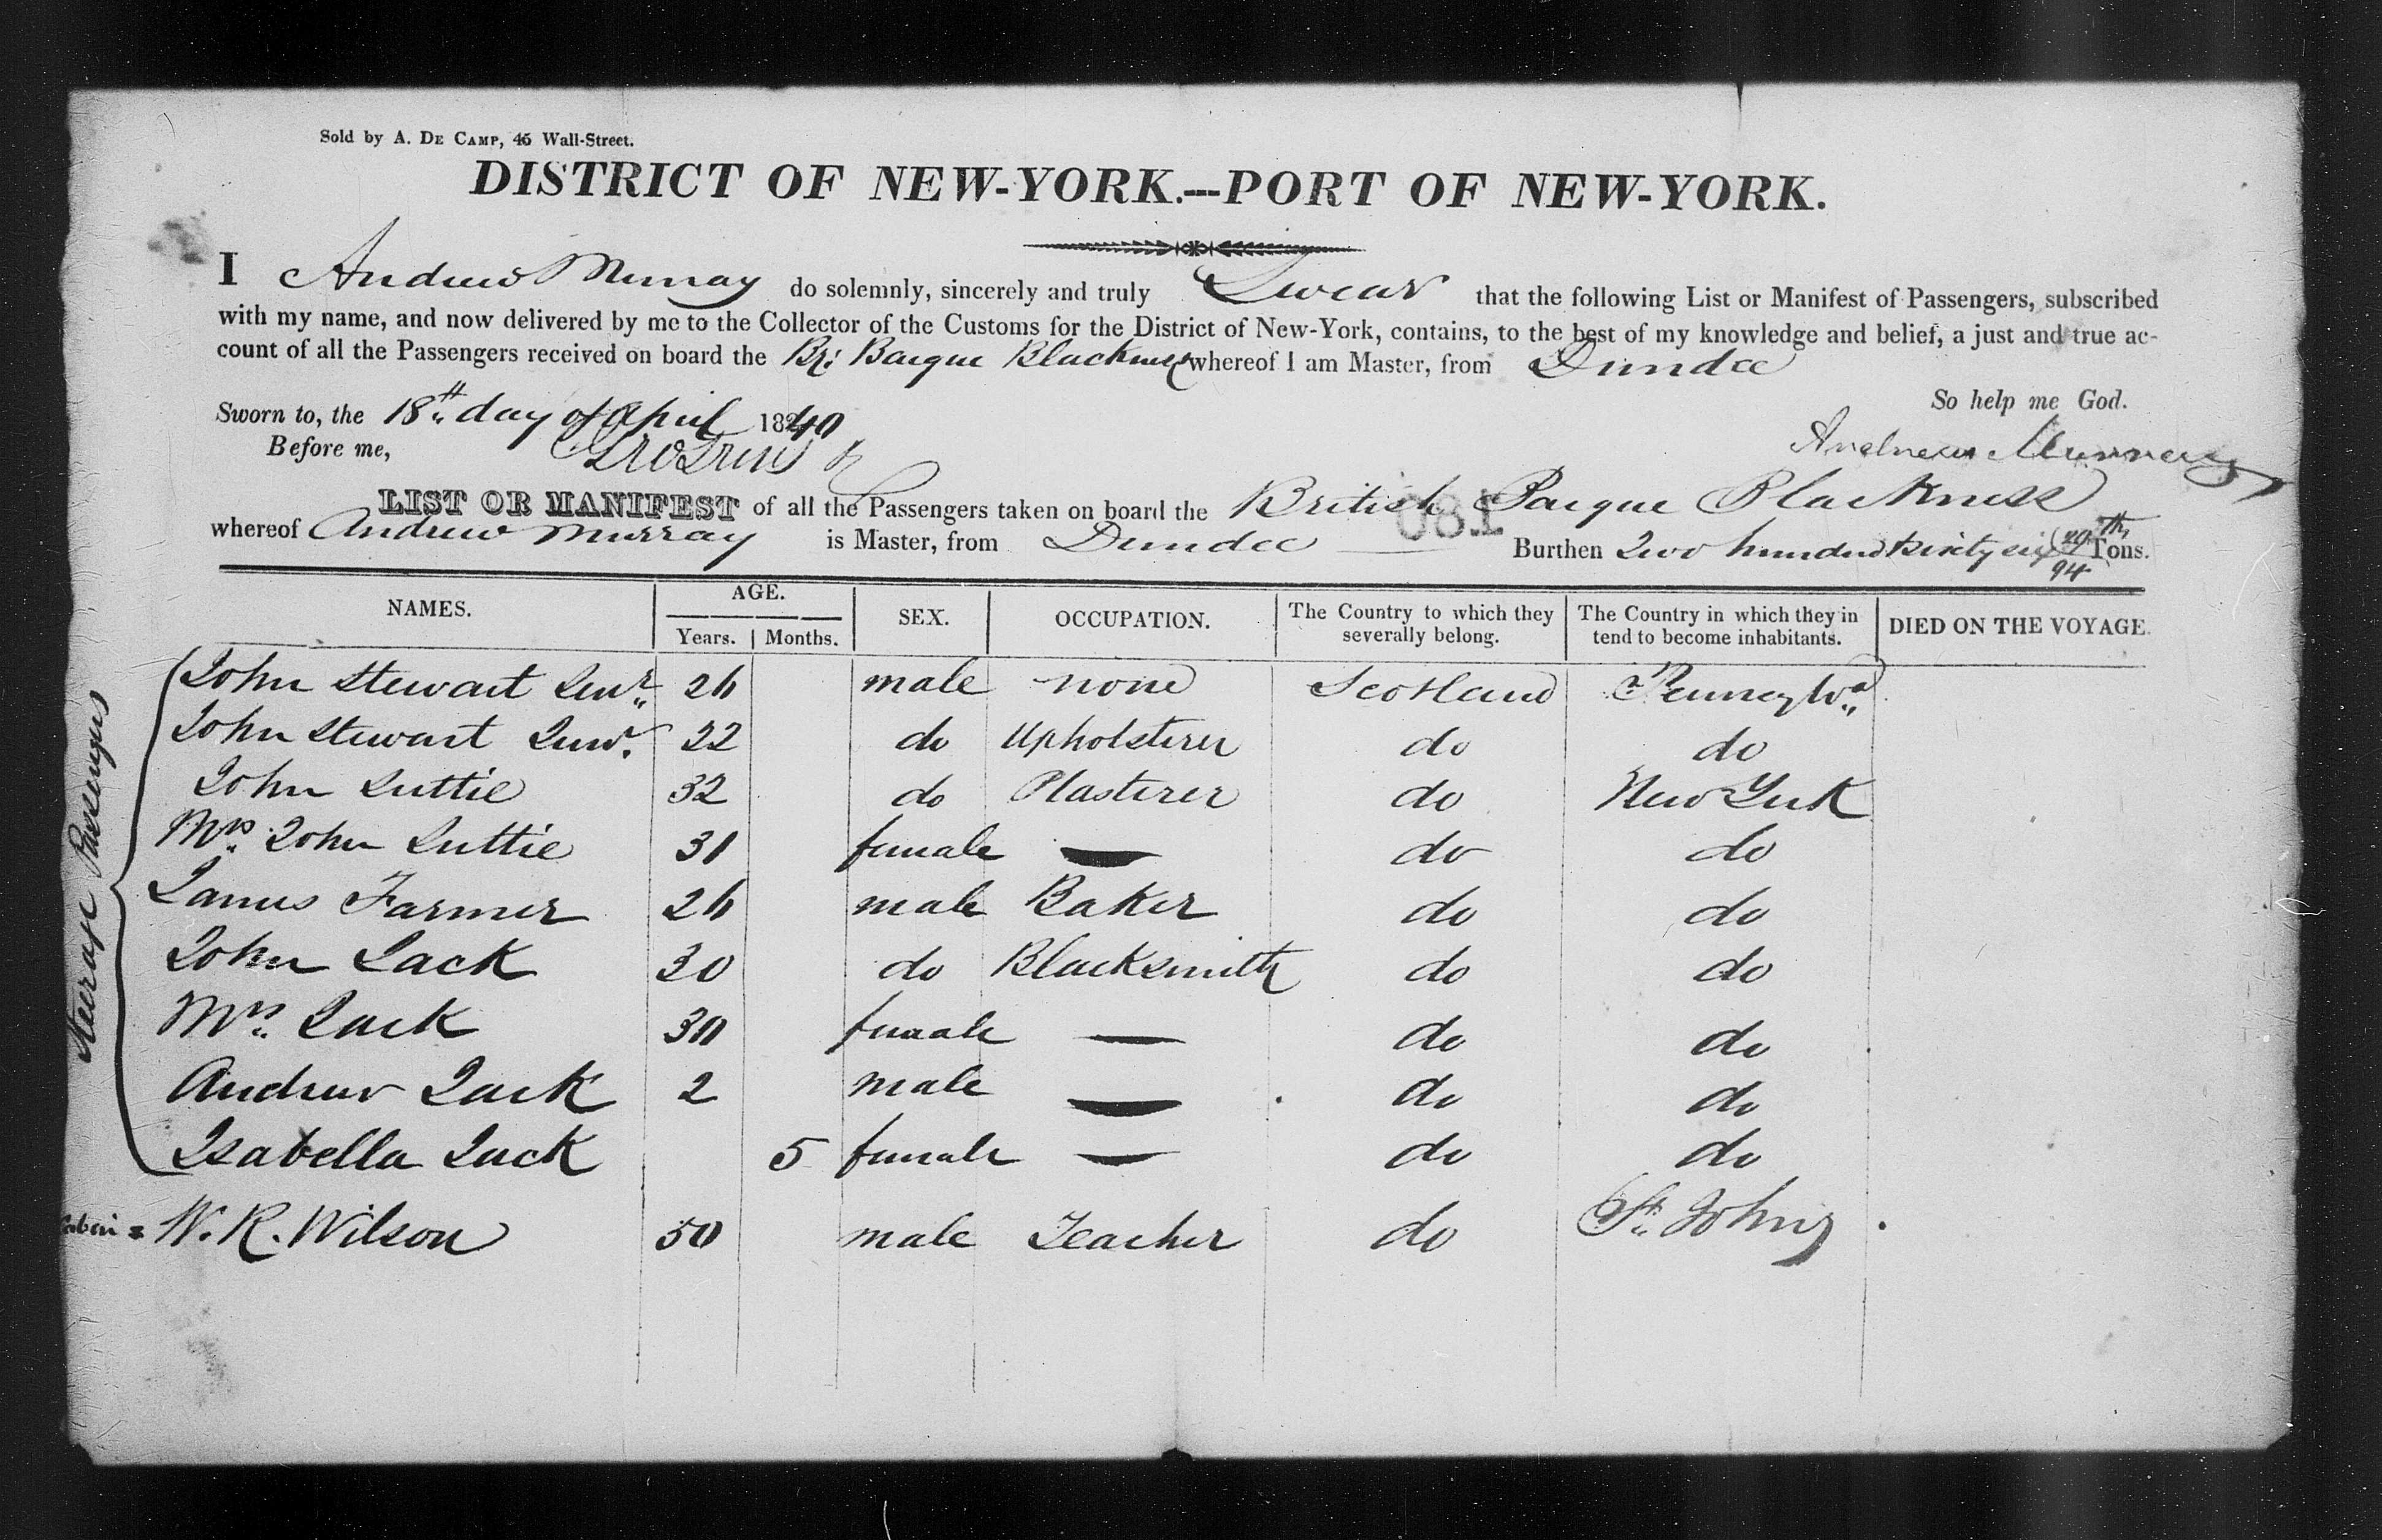 Sold by A. DE CAMP, 45 Wall-Street.
DISTRICT OF NEW-YORK.---PORT OF NEW-YORK.
I Andrew Murray do solemnly, sincerely and truly Swear that the following List or Manifest of Passengers, subscribed
with my name, and now delivered by me to the Collector of the Customs for the District of New-York, contains, to the best of my knowledge and belief, a just and true ac-
count of all the Passengers received on board the Br: Barque Blackness whereof I am Master, from Dundee
So help me God.
Sworn to, the 18th day of April 1840
Before me,
Andrew Murray
LIST OR MANIFEST of all the Passengers taken on board the British Barque Blackness
081
whereof Andrew Murray is Master, from Dundee Burthen Two hundred & sixty six 20/94 th Tons.
NAMES. AGE. Years. Months. SEX. OCCUPATION. The Country to which they severally belong. The Country in which they in tend to become inhabitants. DIED ON THE VOYAGE.
Steerage Passengers
John Stewart Senr. 26 male none Scotland Pennsylva.
John Stewart Junr. 22 do Upholsterer do do
John Suttie 32 do Plasterer do New York
Mrs. John Suttie 31 female — do do
James Farmer 26 male Baker do do
John Jack 30 do Blacksmith do do
Mrs. Jack 30 female — do do
Andrew Jack 2 male — do do
Isabella Jack 5 female — do do
Cabin = W. R. Wilson 50 male Teacher do St. Johns